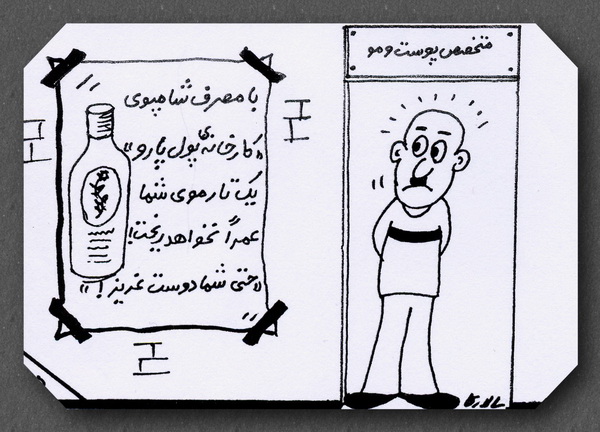 متخصص پوست و مو
با مصرف شامپوی
«کارخانهٔ پول پارو»
یک تار موی شما
عمراً نخواهد ریخت!
«حتی شما دوست عزیز!»